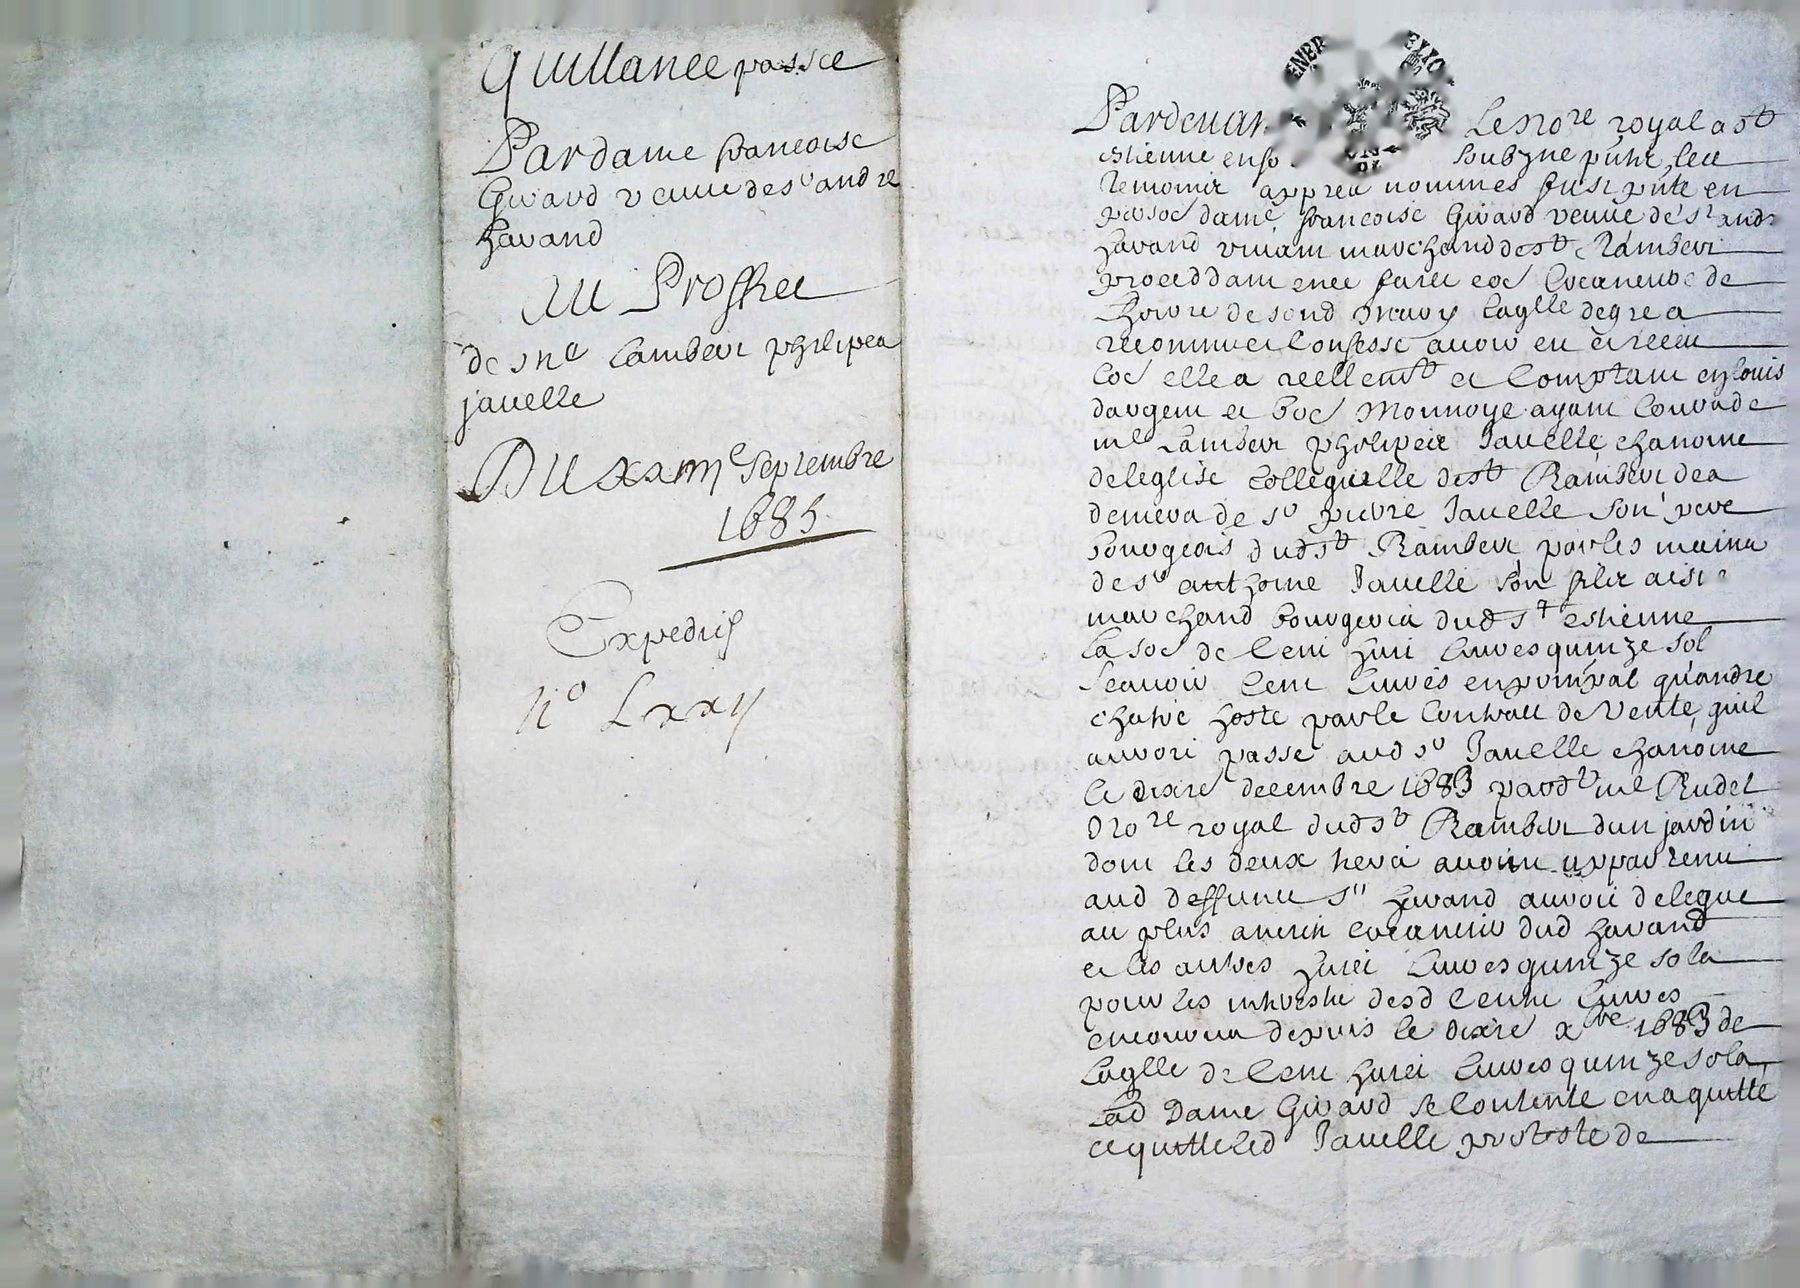 Quittance passee
Par dame francoise
Girard veuve de sr andre
havard
Au Proffict
de me Lambert philipes
javelle
Du xxiiije septembre
1685
Expedié
no Lxxij
Pardevan Le nore royal a st
estienne en fo soubzne pnt les
temoins appres nommés fust pnte en
dame francoise Girard veuve de sr andr
havard vivant marchand de st Rambert
proceddant en ce faict coe de
de son d mary laqlle de gre a
recogneu et Confessé avoir eu et receu
Coe elle a reellemt et Comptant en louis
dargent et boe Monnoye ayant Cours de
me Lambert philipes Javelle chanoine
de leglise collegialle de st Rambert des
deniers de sr pierre Javelle son pere
bourgeois dud st Rambert par les mains
de sr anthoine Javelle son filz aisn
marchand bourgeois dud st estienne
La soe de Cent huict livres quinze sol
Scavoir Cent livres en ppal qu'andre
hoste par le Contract de vente quil
auroit passe aud sr Javelle chanoine
le dixie decembre 1683 pard me Rudel
nore royal dud st Rambert dun jardin
dont les deux tiers avoint appartenu
aud deffunct sr havard auroit delegue
au plus antien creancier dud havard
et les autres huict livres quinze sols
pour les intherestz desd Cent livres
encourus depuis le dixie xbre 1683 de
Laqlle de Cent huict livres quinze sols
Lad Dame Girard se Contente en a quitté
et quitte led Javelle proteste de